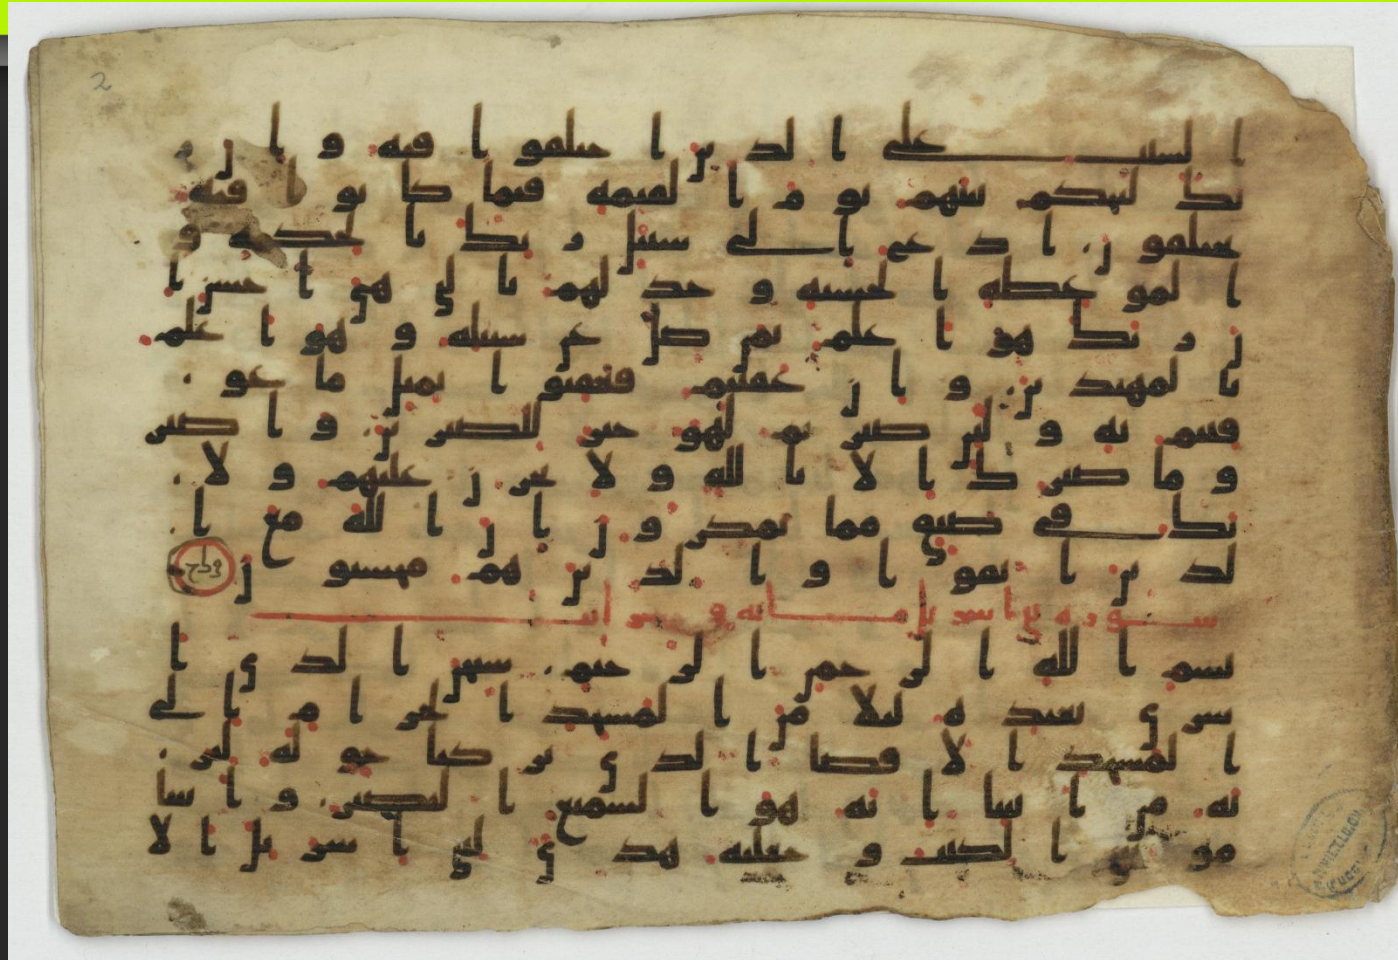 2
السبت على الذين اختلفوا فيه وان ر
بك ليحكم بينهم يوم القيمة فيما كانوا فيه
يختلفون ادع الى سبيل ربك بالحكمة و
الموعظة الحسنة وجدلهم بالتي هي احسن ا
ن ربك هو اعلم بمن ضل عن سبيله وهو اعلم
بالمهتدين وان عقبتم فعقبوا بمثل ما عو
قبتم به ولئن صبرتم لهو خير للصبرين واصبر
وما صبرك الا بالله ولا تحزن عليهم ولا
تك في ضيق مما يمكرون ان الله مع ا
لذين اتقوا والذين هم محسنون
سورة بني اسريل مايه و
بسم الله الرحمن الرحيم سبحن الذي ا
سرى بعبده ليلا من المسجد الحرام الى
المسجد الاقصا الذي بركنا حوله لنر
يه من ايتنا انه هو السميع البصير واتينا
موسى الكتب وجعلنه هدى لبني اسريل الا